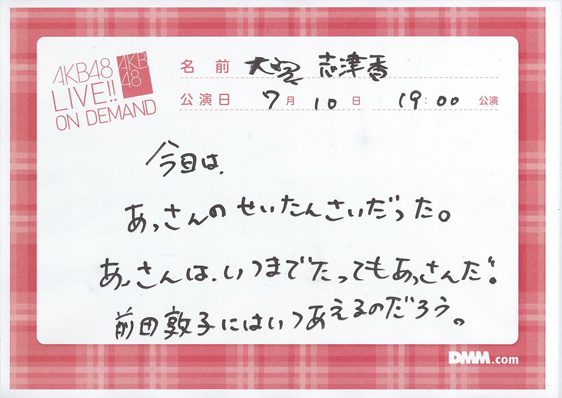 AKB48
LIVE!!
ON DEMAND
AKB
48
名前 大堀 志津香
公演日 7月10日 19:00 公演
今日は、
あっさんのせいたんさいだった。
あっさんは、いつまでたってもあっさんだ。
前田敦子にはいつあえるのだろう。
DMM.com